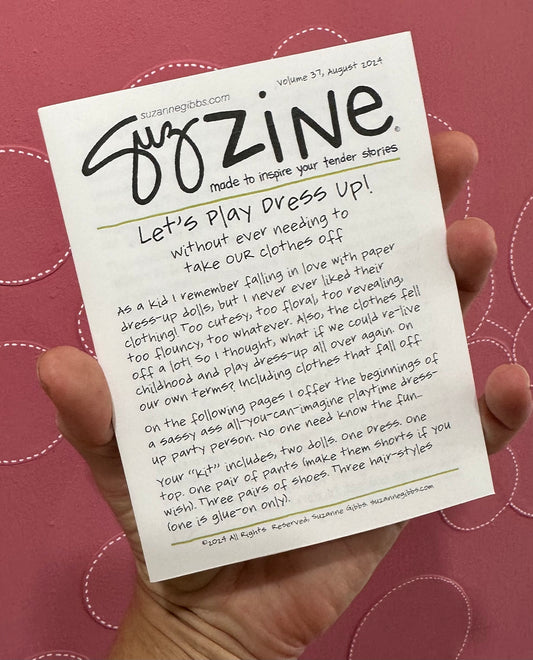 suzannegibbs.com
Volume 37, August 2024
Suz ZINE
made to inspire your tender stories
Let's Play Dress Up!
without ever needing to
take OUR clothes off
As a kid I remember falling in love with paper
dress-up dolls, but I never ever liked their
clothing! Too cutesy, too floral, too revealing,
too flouncy, too whatever. Also, the clothes fell
off a lot! So I thought, what if we could re-live
childhood and play dress-up all over again. On
our own terms? Including clothes that fall off
On the following pages I offer the beginnings of
a sassy ass all-you-can-imagine playtime dress-
up party person. No one need know the fun...
Your "kit" includes, two dolls. One Dress. One
top. One pair of pants (make them shorts if you
wish). Three pairs of shoes. Three hair-styles
(one is glue-on only).
©2024 All Rights Reserved, Suzanne Gibbs suzannegibbs.com